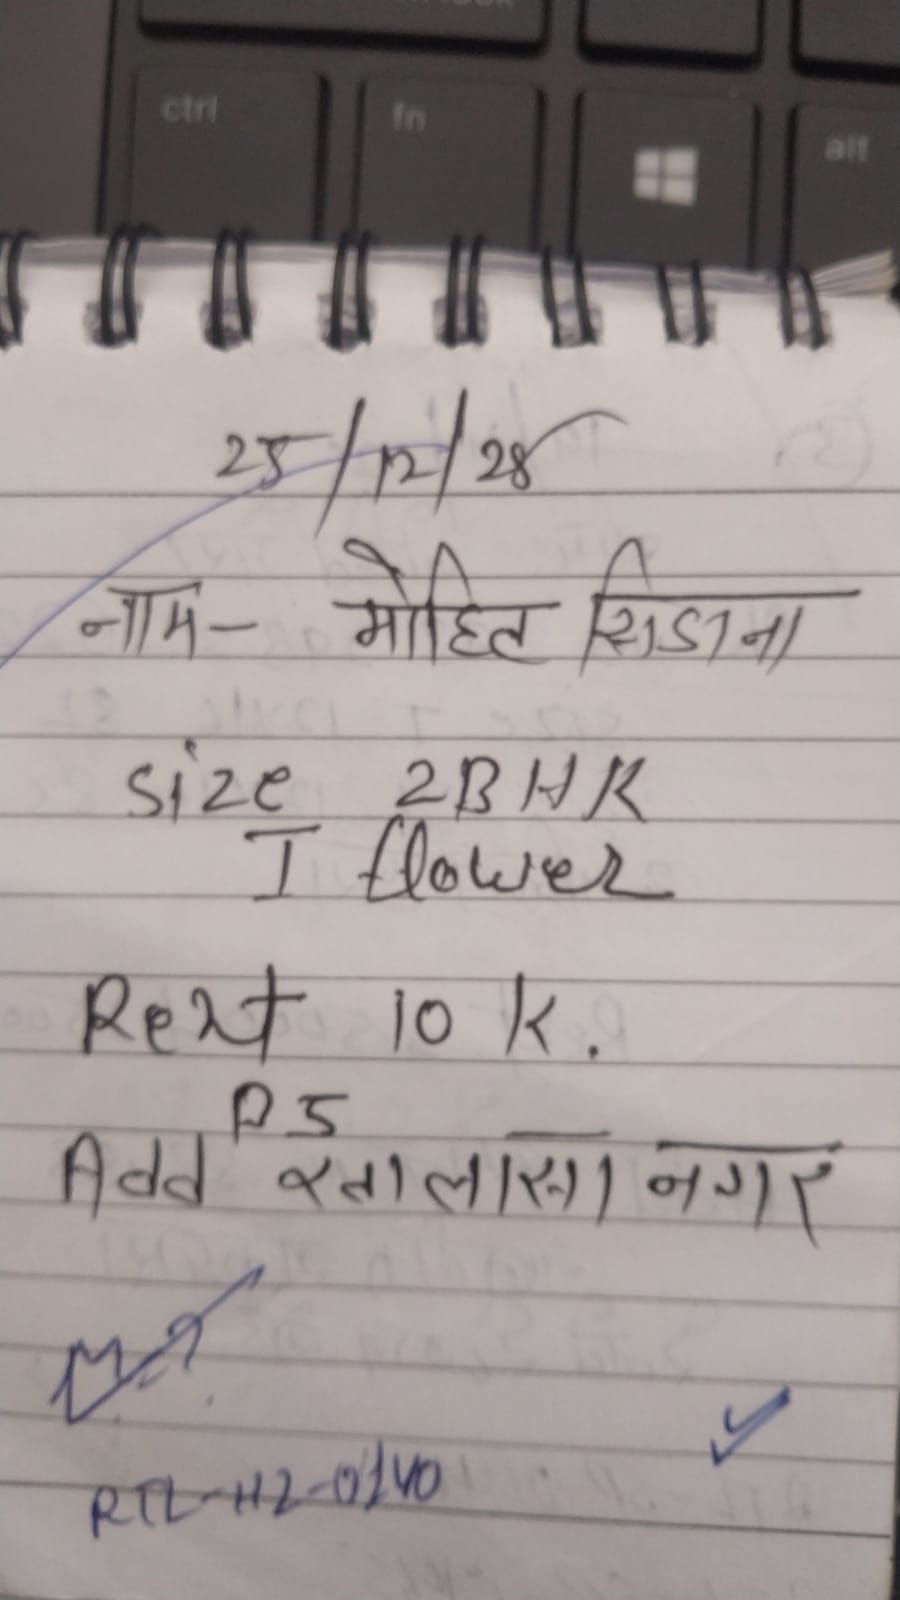 ctrl fn alt
25/12/28
नाम - मोहित सिडाना
Size 2BHK
I flower
Rent 10 K.
P 5
Add नगर
RTL-H2-0140